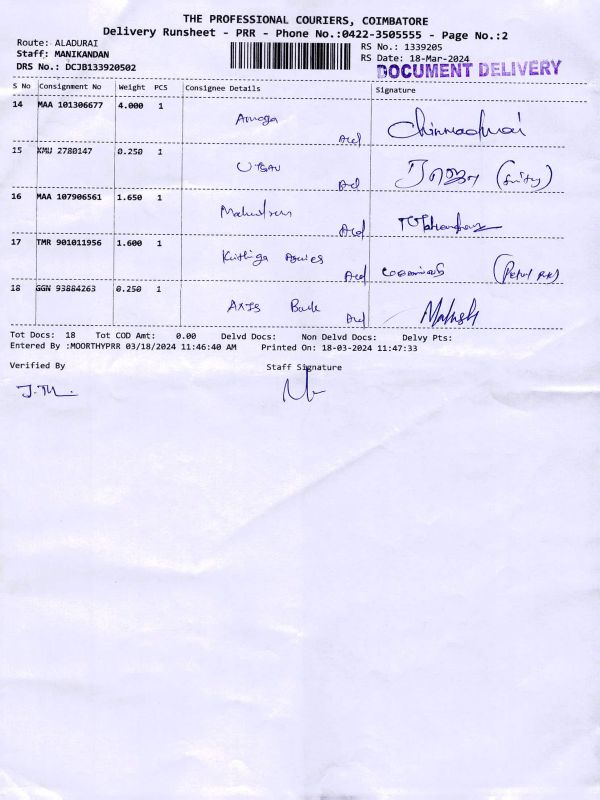 THE PROFESSIONAL COURIERS, COIMBATORE
Delivery Runsheet - PRR - Phone No.:0422-3505555 - Page No.:2
Route: ALADURAI
Staff: MANIKANDAN
DRS No.: DCJB133920502
RS No.: 1339205
RS Date: 18-Mar-2024
DOCUMENT DELIVERY
S No Consignment No Weight PCS Consignee Details Signature
14 MAA 101306677 4.000 1
15 KMU 2780147 0.250 1
16 MAA 107906561 1.650 1
17 TMR 901011956 1.600 1
18 GGN 93884263 0.250 1 AXIS Bank
Tot Docs: 18 Tot COD Amt: 0.00 Delvd Docs: Non Delvd Docs: Delvy Pts:
Entered By :MOORTHYPRR 03/18/2024 11:46:40 AM Printed On: 18-03-2024 11:47:33
Verified By Staff Signature